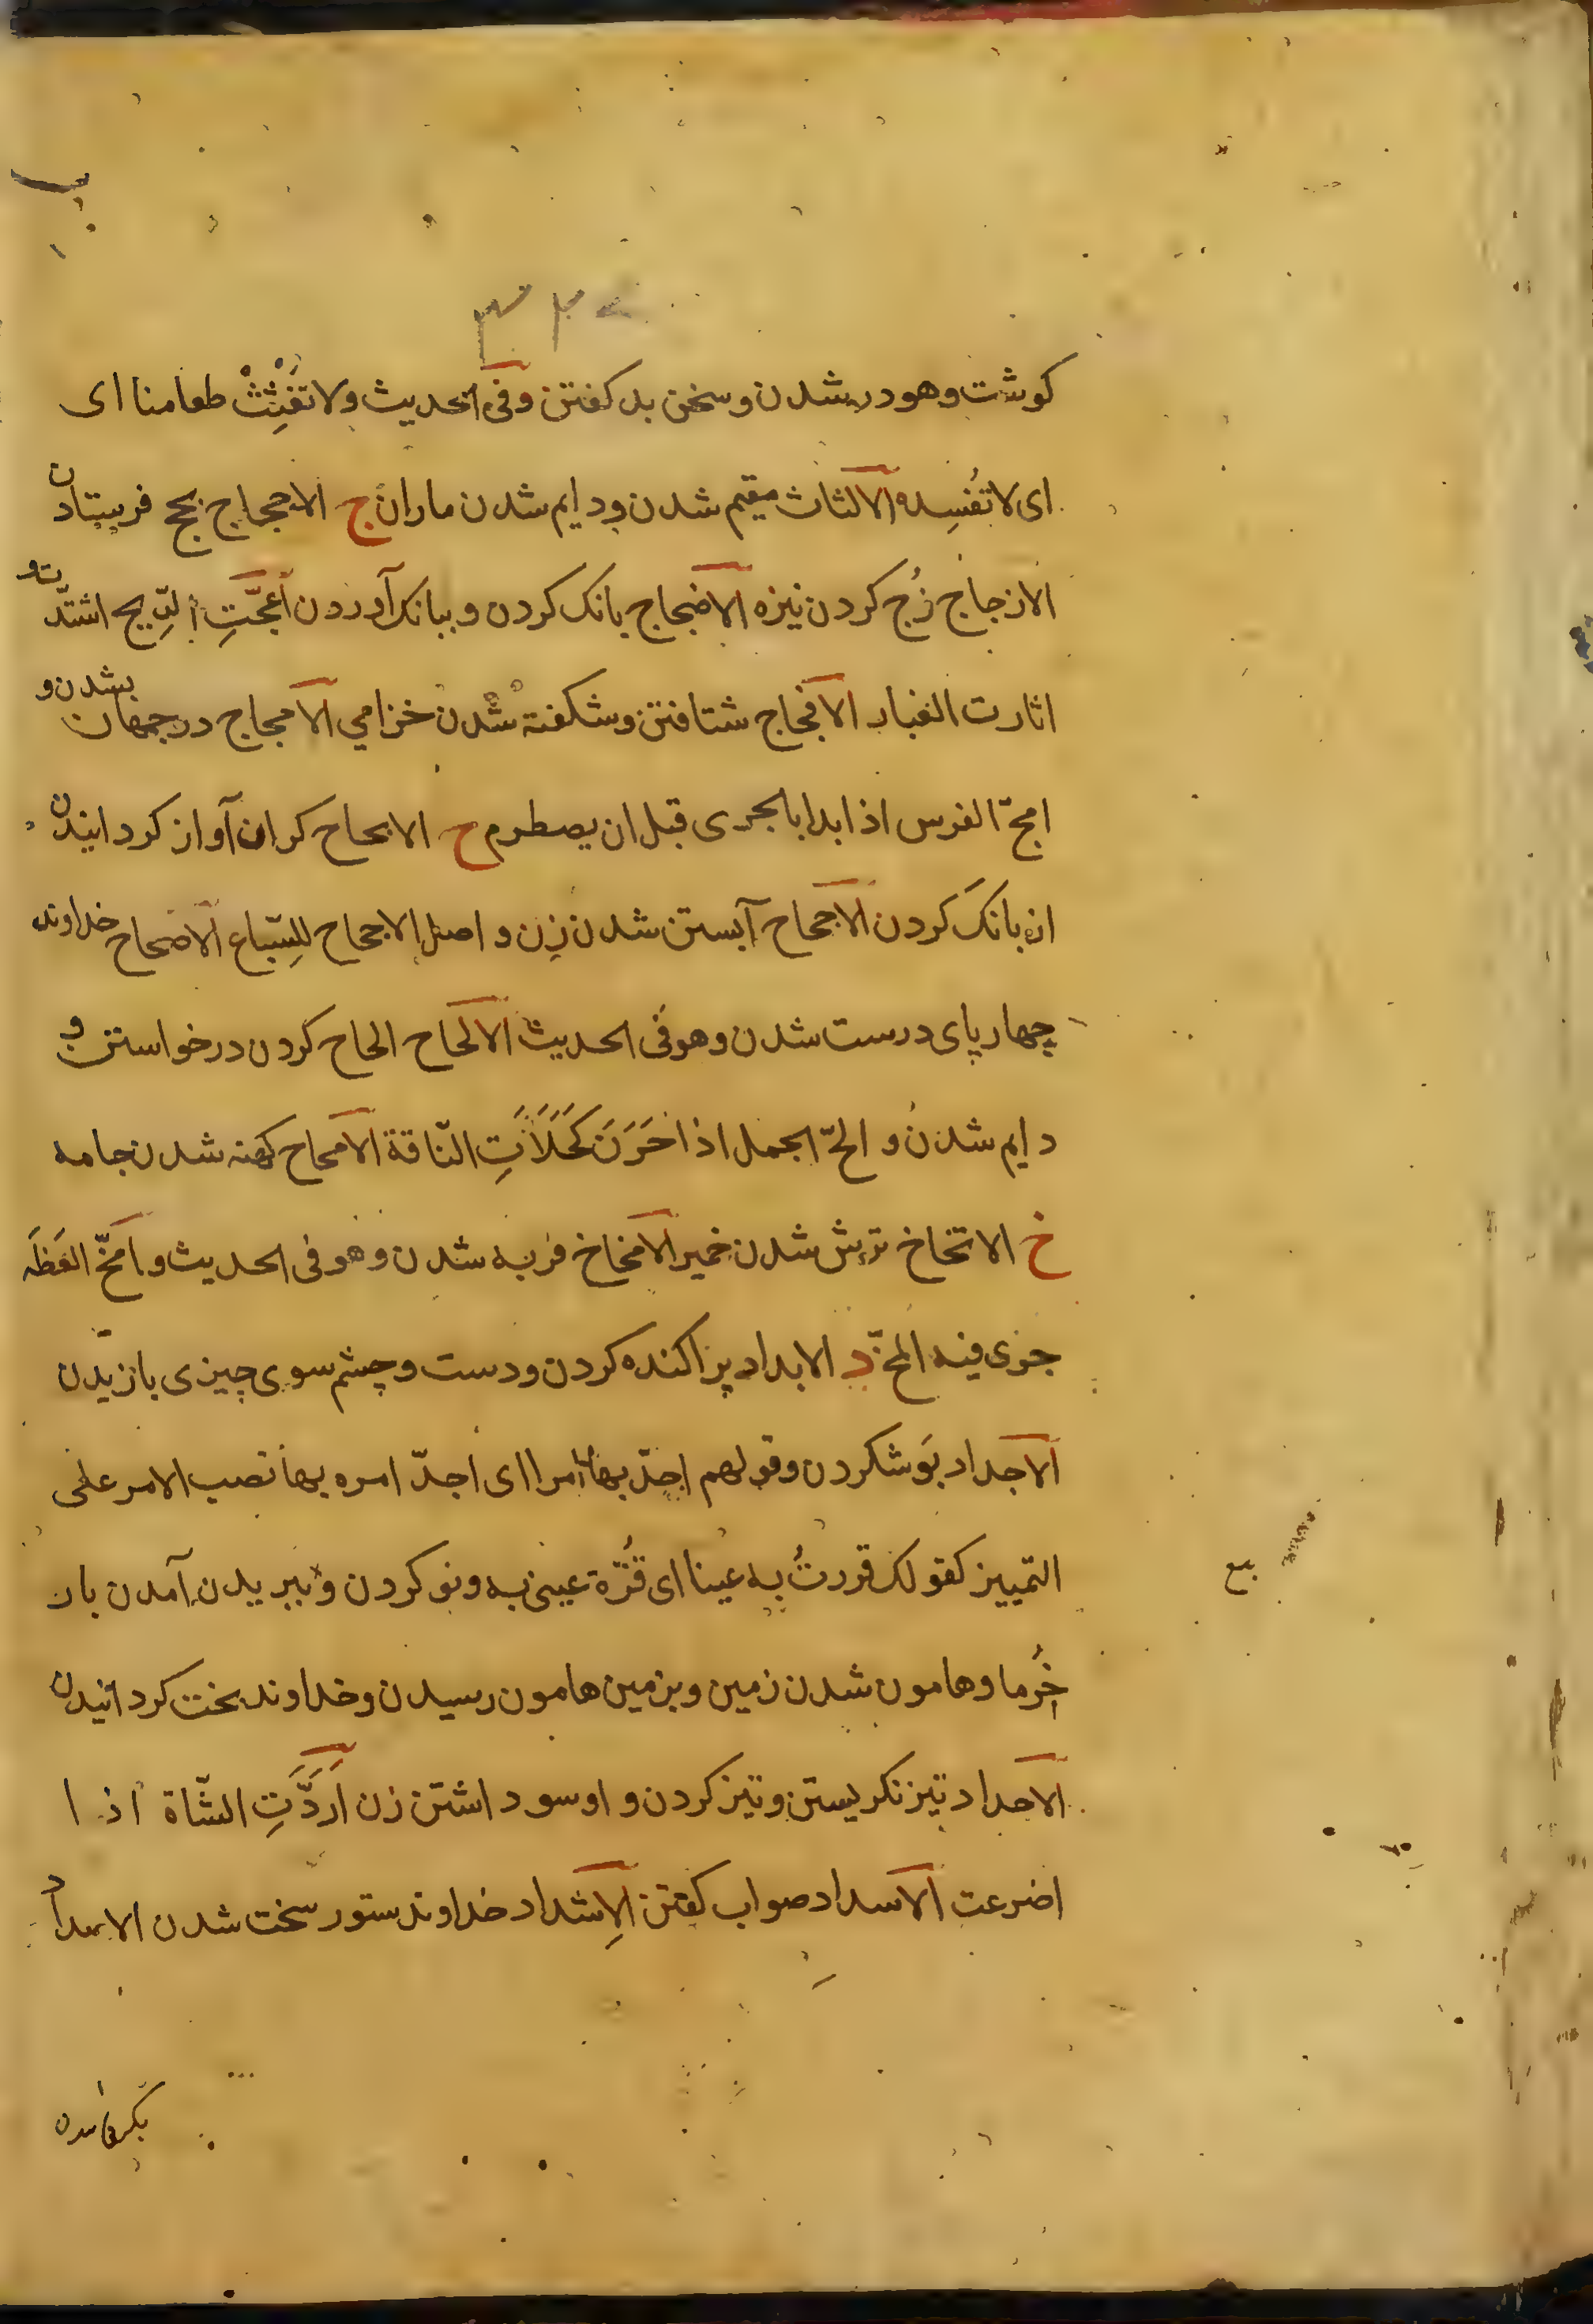 ٣٢
كوشت وهو در شدن وسخن بد كفتن وفى الحديث ولا تغثث طعامنا اى
اى لا تفسده الالثاث مقيم شدن ودايم شدن ماران ج الاحجاج بحج فرستادن
الازجاج زُج كردن نيزه الاضجاج بانك كردن وببانك آوردن أعجّتِ الرّيح اشتدّت و
اثارت الغبار الافجاج شتافتن وشكفته شدن خزامي الامجاج در جهان بشدن و
امجّ الفرس اذا بدا بالجرى قبل ان يصطرم ح الابحاح كران آواز كردانيدن
از بانك كردن الاجحاح آبستن شدن زن و اصل الاجحاح للسّباع الاصحاح خداوند
چهارپاى درست شدن وهو فى الحديث الالحاح الحاح كردن در خواستن و
دايم شدن و الحّ الجمل اذا حَرَنَ كَخَلَأَتِ النّاقة الامحاح كهنه شدن جامه
خ الاتخاخ ترش شدن خمير الامخاخ فربه شدن وهو فى الحديث و امخّ العَظم
جرى فيه المخ د الابداد پراكنده كردن ودست وچشم سوى چيزى بازيدن
الاجداد بَوشكردن وقولهم اجدّ بها امرا اى اجدّ امره بها نصب الامر على
التمييز كقولك قررتُ به عينا اى قُرّة عينى به ونو كردن و ببريدن آمدن بار
خُرما وهامون شدن زمين وبزمين هامون رسيدن وخداوند بخت كردانيدن
الاحداد تيز نكريستن وتيز كردن و او سود اشتن زن اَردَّتِ الشّاة اذا
اضرعت الاسداد صواب كفتن الاِشداد خداوند ستور سخت شدن الامداد